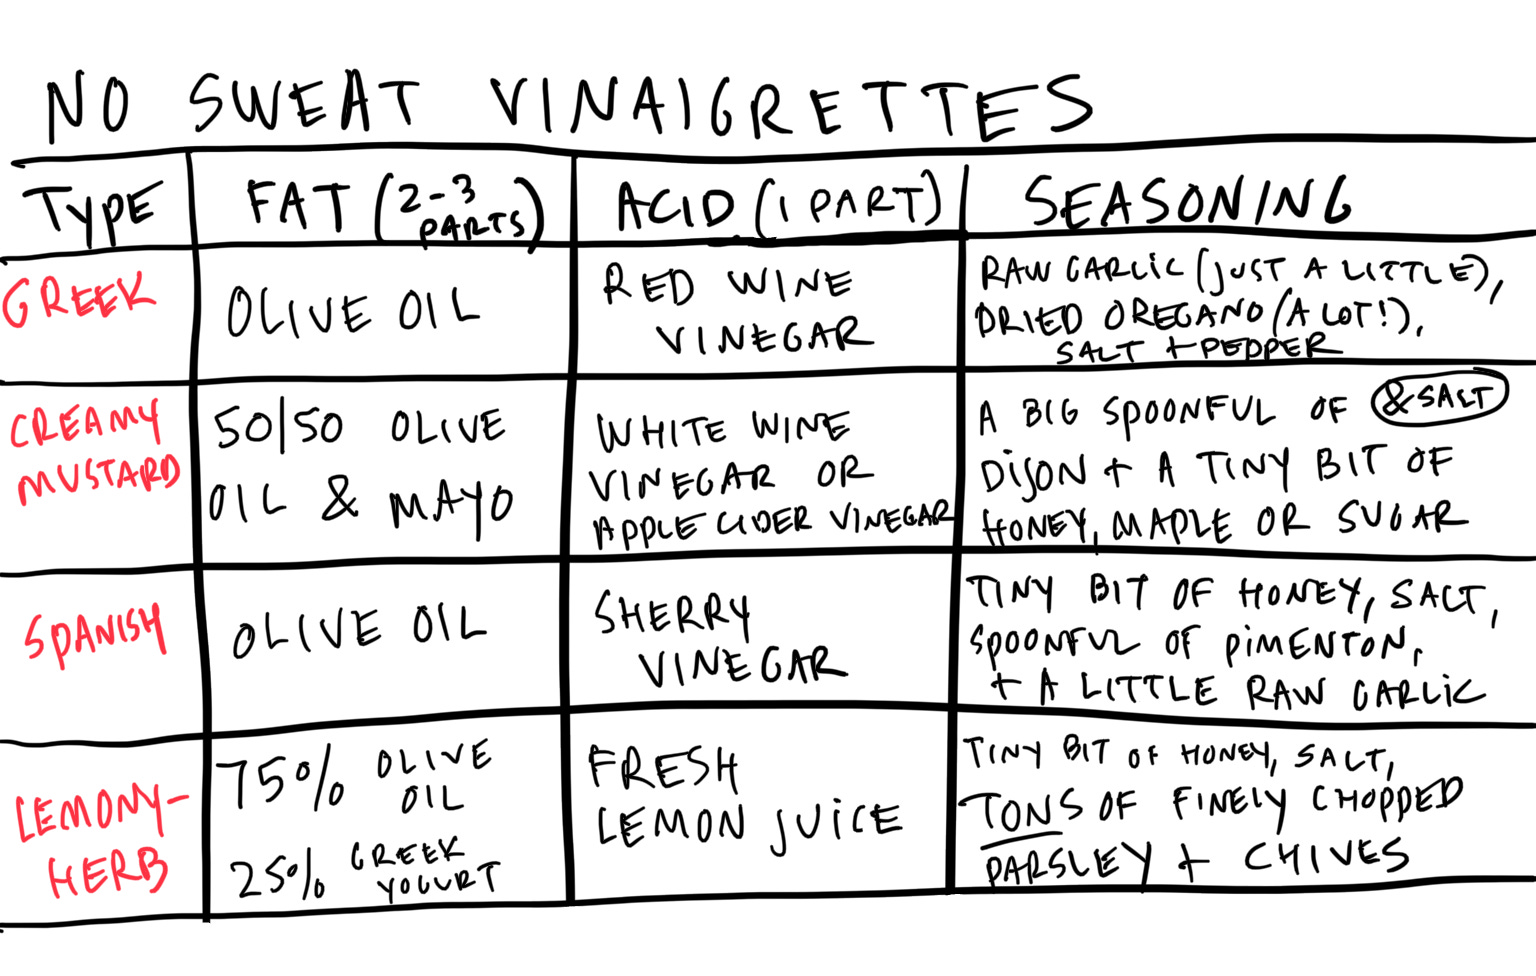 NO SWEAT VINAIGRETTES
TYPE
FAT (2-3 PARTS)
ACID (1 PART)
SEASONING
GREEK
OLIVE OIL
RED WINE
VINEGAR
RAW GARLIC (JUST A LITTLE),
DRIED OREGANO (A LOT!),
SALT + PEPPER
CREAMY
MUSTARD
50/50 OLIVE
OIL & MAYO
WHITE WINE
VINEGAR OR
APPLE CIDER VINEGAR
A BIG SPOONFUL OF & SALT
DIJON + A TINY BIT OF
HONEY, MAPLE OR SUGAR
SPANISH
OLIVE OIL
SHERRY
VINEGAR
TINY BIT OF HONEY, SALT,
SPOONFUL OF PIMENTON,
+ A LITTLE RAW GARLIC
LEMONY-
HERB
75% OLIVE
OIL
25% GREEK
YOGURT
FRESH
LEMON JUICE
TINY BIT OF HONEY, SALT,
TONS OF FINELY CHOPPED
PARSLEY + CHIVES